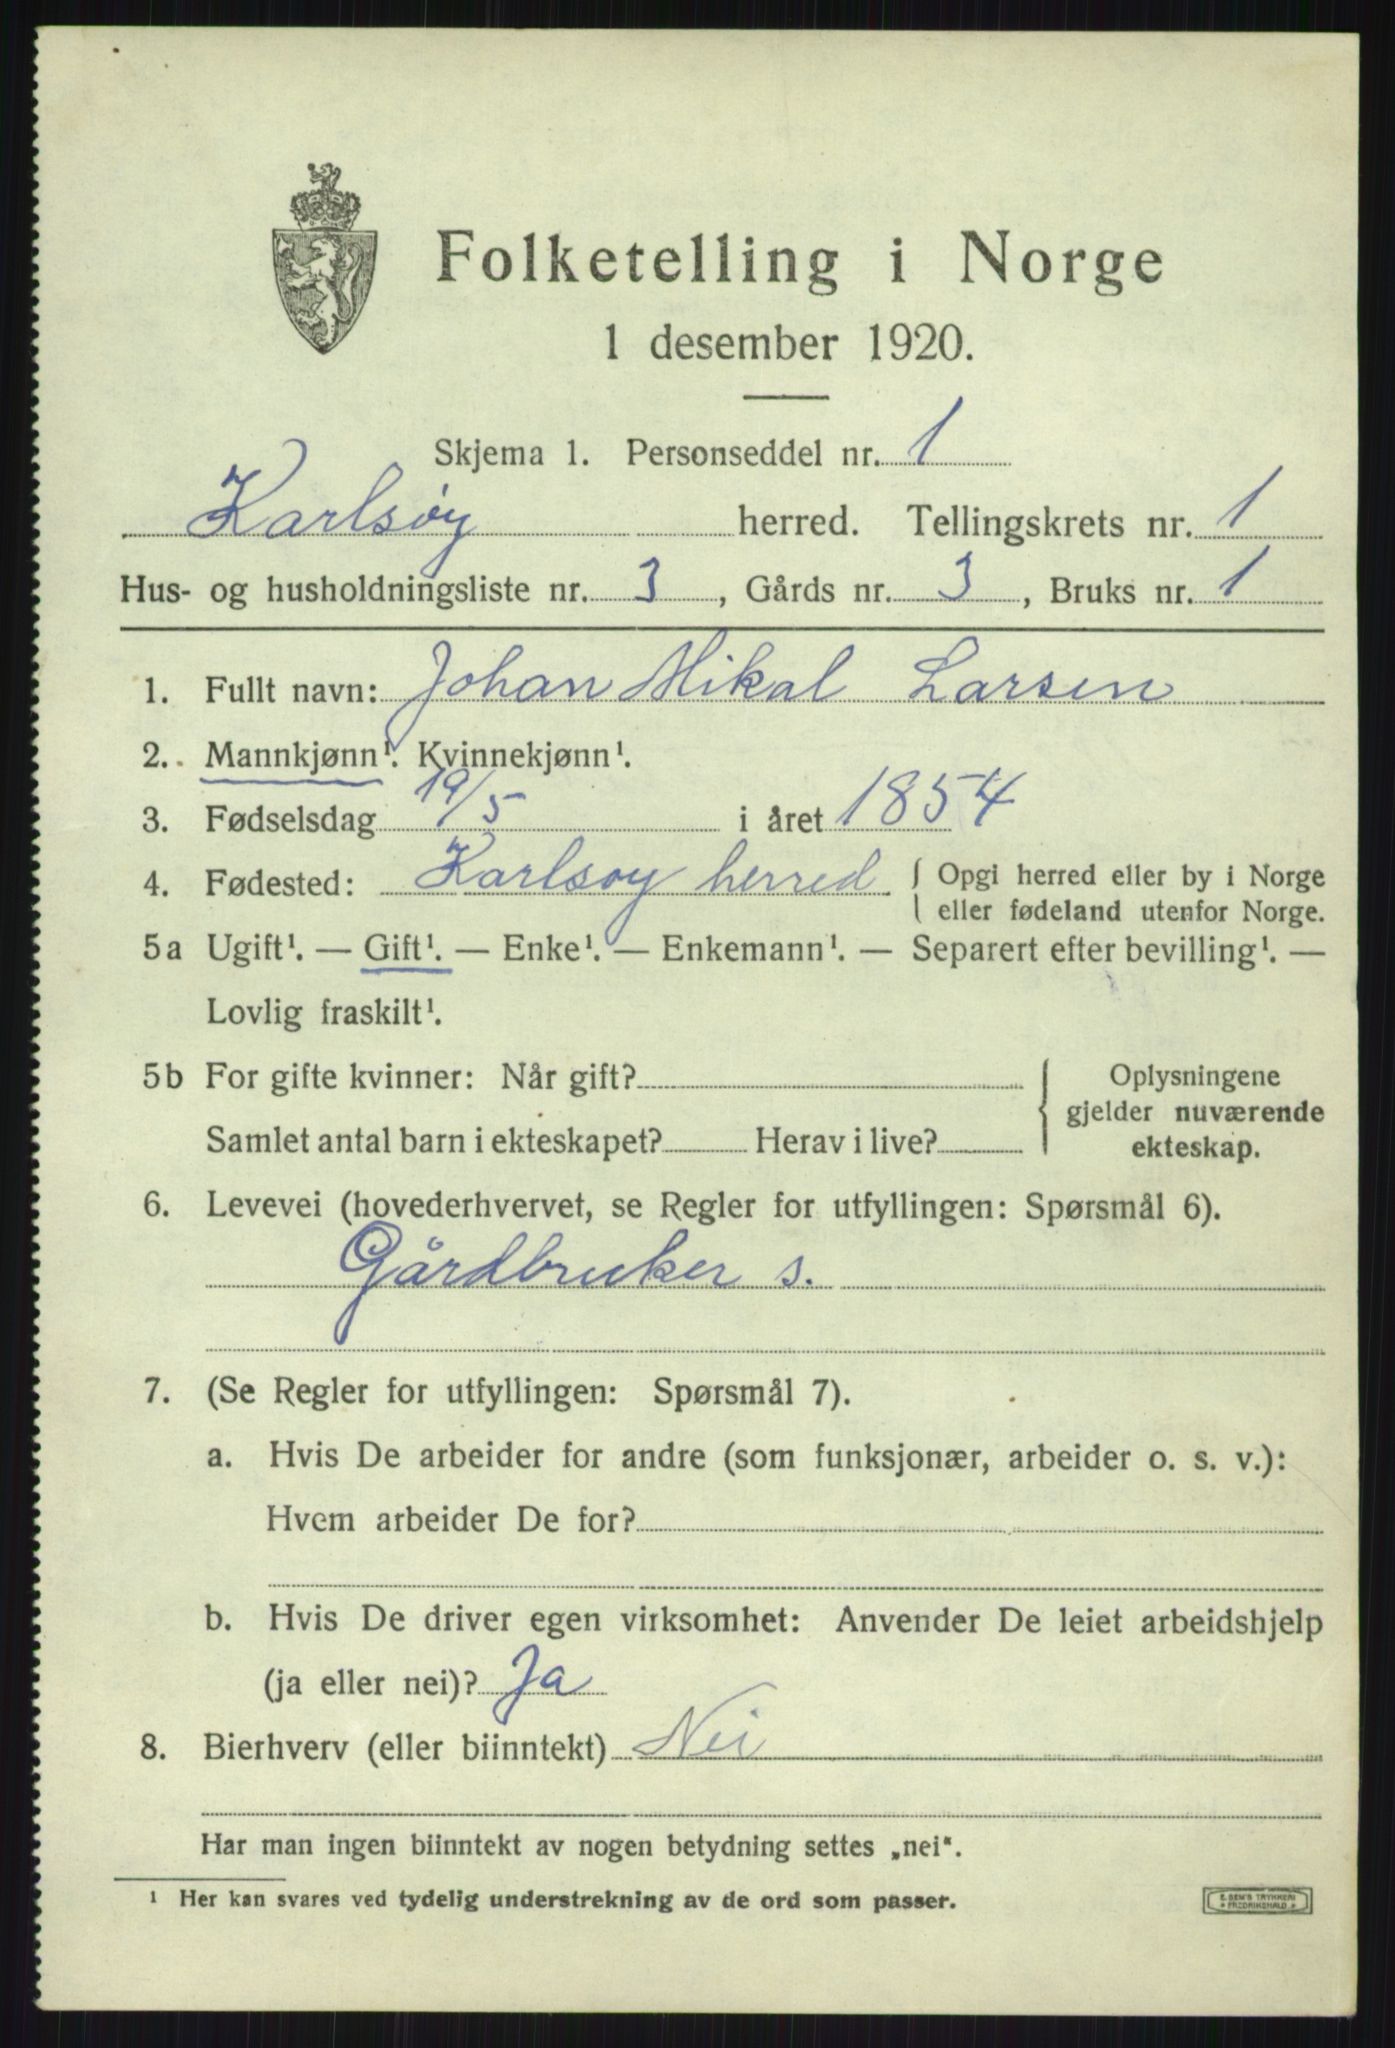 Folketelling i Norge
1 desember 1920.
Skjema 1. Personseddel nr. 1
Karlsøy herred. Tellingskrets nr. 1
Hus- og husholdningsliste nr. 3, Gårds nr. 3, Bruks nr. 1
1. Fullt navn: Johan Mikal Larsen
2. Mannkjønn¹. Kvinnekjønn¹.
3. Fødselsdag 19/5 i året 1854
4. Fødested: Karlsoy herred { Opgi herred eller by i Norge
eller fødeland utenfor Norge.
5a Ugift¹. — Gift¹. — Enke¹. — Enkemann¹. — Separert efter bevilling¹. —
Lovlig fraskilt¹.
5b For gifte kvinner: Når gift? { Oplysningene
gjelder nuværende
Samlet antal barn i ekteskapet? Herav i live? ekteskap.
6. Levevei (hovederhvervet, se Regler for utfyllingen: Spørsmål 6).
Gårdbruker s.
7. (Se Regler for utfyllingen: Spørsmål 7).
a. Hvis De arbeider for andre (som funksjonær, arbeider o. s. v.):
Hvem arbeider De for?
b. Hvis De driver egen virksomhet: Anvender De leiet arbeidshjelp
(ja eller nei)? Ja
8. Bierhverv (eller biinntekt) Nei
Har man ingen biinntekt av nogen betydning settes „nei“.
¹ Her kan svares ved tydelig understrekning av de ord som passer.
E. SEM'S TRYKKERI
* FREDRIKSHALD *